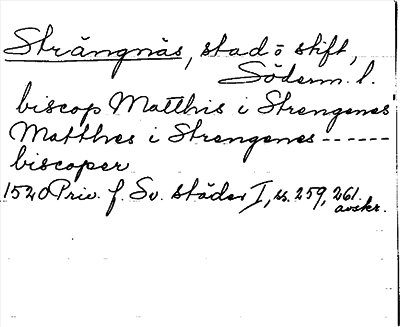 Strängnäs, stad o stift,
Söderm. l.
biscop Matthis i Strengenes
Matthes i Strengenes ------
biscoper
1520 Priv. f. Sv. städer I, ss. 259, 261.
avskr.